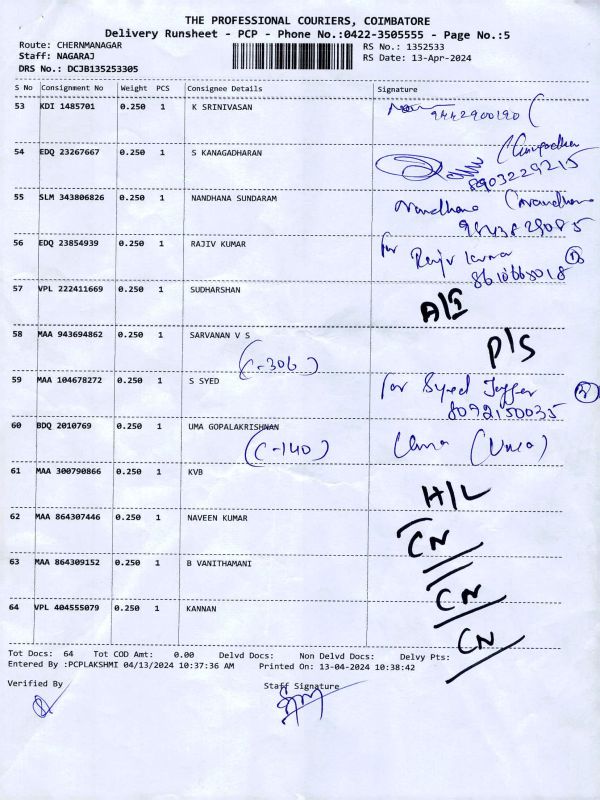 THE PROFESSIONAL COURIERS, COIMBATORE
Delivery Runsheet - PCP - Phone No.:0422-3505555 - Page No.:5
Route: CHERNMANAGAR RS No.: 1352533
Staff: NAGARAJ RS Date: 13-Apr-2024
DRS No.: DCJB135253305
S No Consignment No Weight PCS Consignee Details Signature
53 KDI 1485701 0.250 1 K SRINIVASAN
9442900190
54 EDQ 23267667 0.250 1 S KANAGADHARAN
8903229215
55 SLM 343806826 0.250 1 NANDHANA SUNDARAM Nandhana (Nandhana
9843829085
56 EDQ 23854939 0.250 1 RAJIV KUMAR for Rajiv Kumar
57 VPL 222411669 0.250 1 SUDHARSHAN
58 MAA 943694862 0.250 1 SARVANAN V S P/S
(C-306)
59 MAA 104678272 0.250 1 S SYED for Syed
8092150035
60 BDQ 2010769 0.250 1 UMA GOPALAKRISHNAN Uma (Uma)
(C-140)
61 MAA 300790866 0.250 1 KVB H/L
62 MAA 864307446 0.250 1 NAVEEN KUMAR CN
63 MAA 864309152 0.250 1 B VANITHAMANI CN
64 VPL 404555079 0.250 1 KANNAN CN
Tot Docs: 64 Tot COD Amt: 0.00 Delvd Docs: Non Delvd Docs: Delvy Pts:
Entered By :PCPLAKSHMI 04/13/2024 10:37:36 AM Printed On: 13-04-2024 10:38:42
Verified By Staff Signature